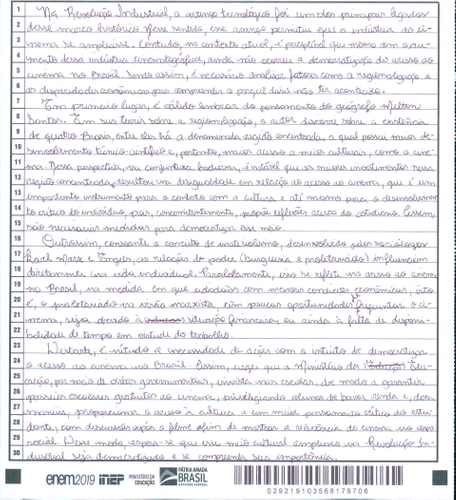 1 Na Revolução Industrial, o avanço tecnológico foi um dos principais legados
2 desse marco histórico. Nesse sentido, esse avanço permitiu que a indústria do ci-
3 nema se ampliasse. Contudo, no contexto atual, é perceptível que mesmo com o au-
4 mento dessa indústria cinematográfica, ainda não ocorreu a democratização do acesso ao
5 cinema no Brasil. Sendo assim, é necessário analisar fatores como a regionalização e
6 as disparidades econômicas que compreender o porquê disso não ter acontecido.
7 Em primeiro lugar, é válido lembrar do pensamento do geógrafo Milton
8 Santos. Em sua teoria sobre a regionalização, o autor discorre sobre a existência
9 de quatro Brasis, entre eles há a denominada região concentrada, a qual possui maior de-
10 senvolvimento técnico-científico e, portanto, maior acesso a meios culturais, como o cine-
11 ma. Nessa perspectiva, na conjuntura hodierna, é notável que os maiores investimentos nessa
12 região concentrada resultou na desigualdade em relação ao acesso ao cinema, que é um
13 importante instrumento para o contato com a cultura e até mesmo para o desenvolvimen-
14 to crítico do indivíduo, pois, concomitantemente, propõe reflexões acerca do cotidiano. Assim,
15 são necessárias medidas para democratizar esse meio.
16 Outrossim, consoante o conceito de materialismo, desenvolvido pelos sociólogos
17 Karl Marx e Engels, as relações de poder (burguesia e proletariado) influenciam
18 diretamente na vida individual. Paralelamente, isso se reflete no acesso ao cinema
19 no Brasil, na medida em que cidadãos com menores condições econômicas, isto
20 é, o proletariado na visão marxista, têm poucas oportunidades frequentar o ci-
21 nema, seja devido à situação financeira, ou ainda à falta de disponi-
22 bilidade de tempo em virtude do trabalho.
23 Destarte, é nítida a necessidade de ações com o intuito de democratizar
24 o acesso ao cinema no Brasil. Assim, urge que o Ministério da Edu-
25 cação, por meio de verbas governamentais, invista nas escolas, de modo a garantir
26 passeios escolares gratuitos ao cinema, privilegiando alunos de baixa renda e, dessa
27 maneira, proporcionar o acesso à cultura e um maior pensamento crítico do estu-
28 dante, com discussões após o filme afim de mostrar a relevância do cinema no meio
29 social. Desse modo, espera-se que esse meio cultural ampliado na Revolução In-
30 dustrial seja democratizado e se compreenda sua importância.
enem2019 inep MINISTÉRIO DA EDUCAÇÃO PÁTRIA AMADA BRASIL GOVERNO FEDERAL
029219103568179706